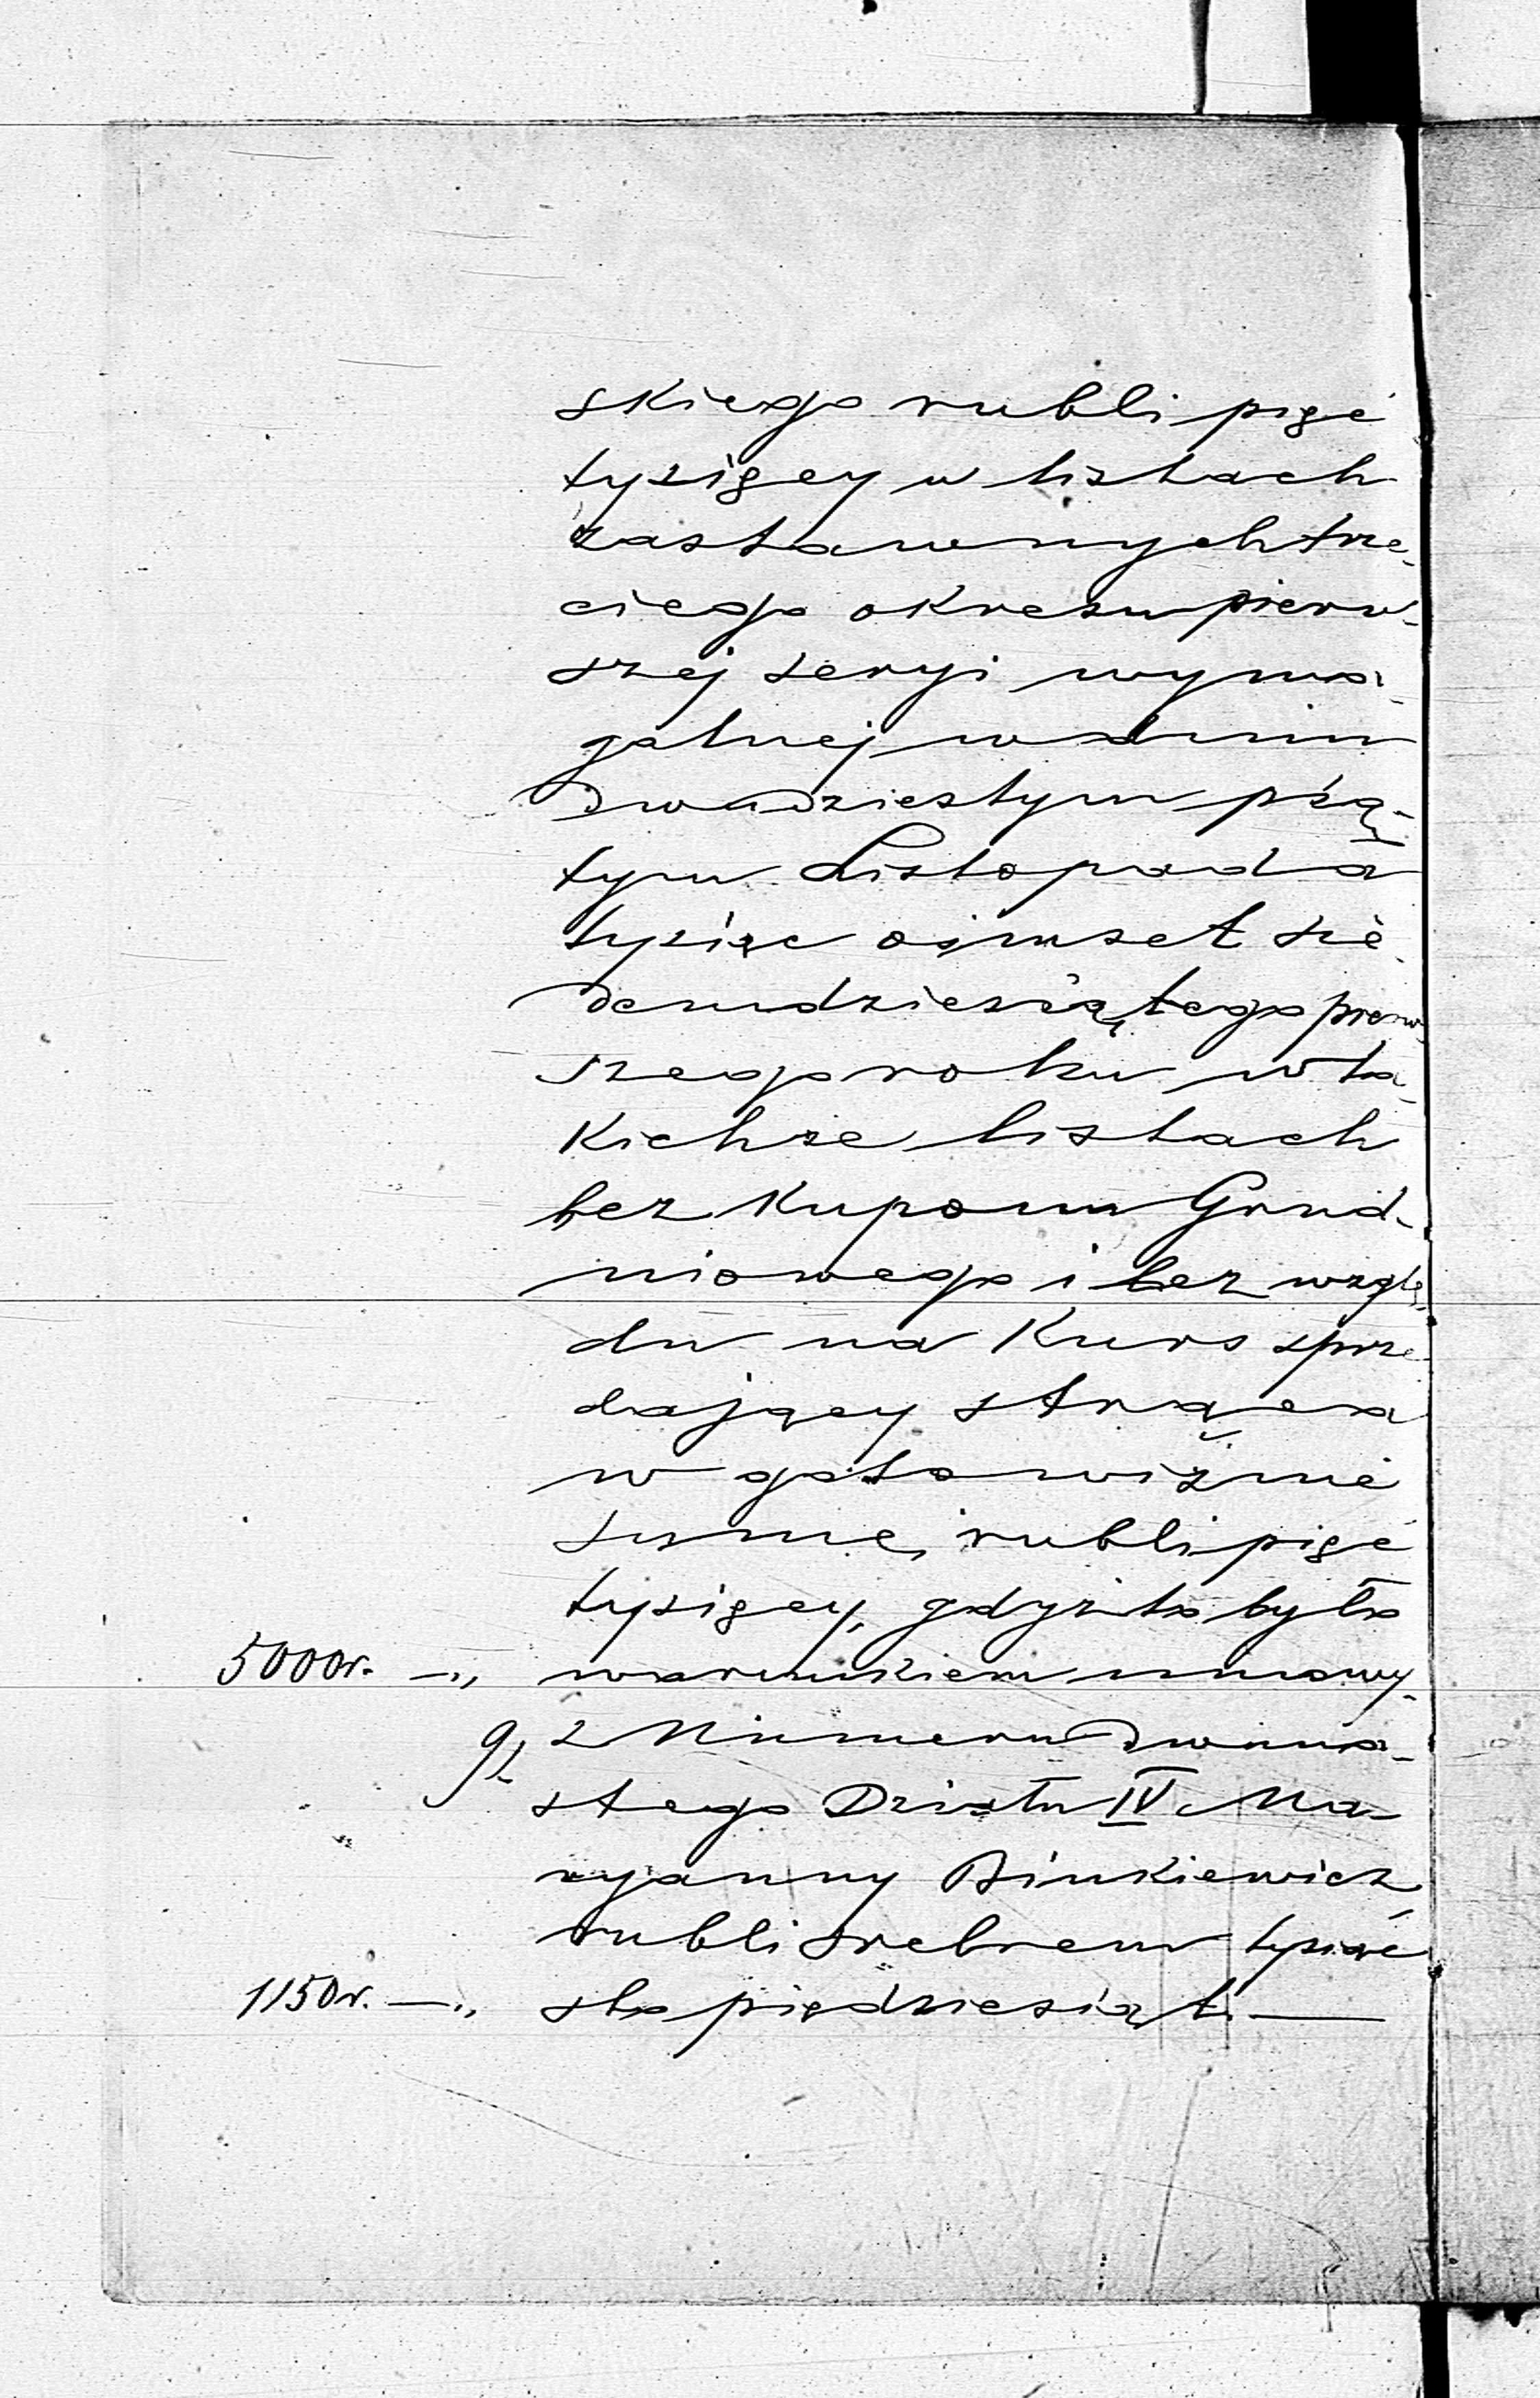 skiego rubli pięć
tysięcy w listach
zastawnych trze-
ciego okresu pierw-
szej seryi wyma-
galnej w dniu
dwudziestym pią-
tym Listopada
tysiąc ośmset sie-
demdziesiątego pierw-
szego roku w ta-
kichże listach
bez kuponu Grud-
niowego i bez wzglę-
du na kurs sprze-
dający strąca
w gotowiźnie
sumę rubli pięć
tysięcy, gdyż to było
5000r. —„ warunkiem umowy.
g/, z Numeru dwuna-
stego Działu IV Ma-
ryanny Binkiewicz
rubli srebrem tysiąc
1150r. —„ sto pięćdziesiąt. —